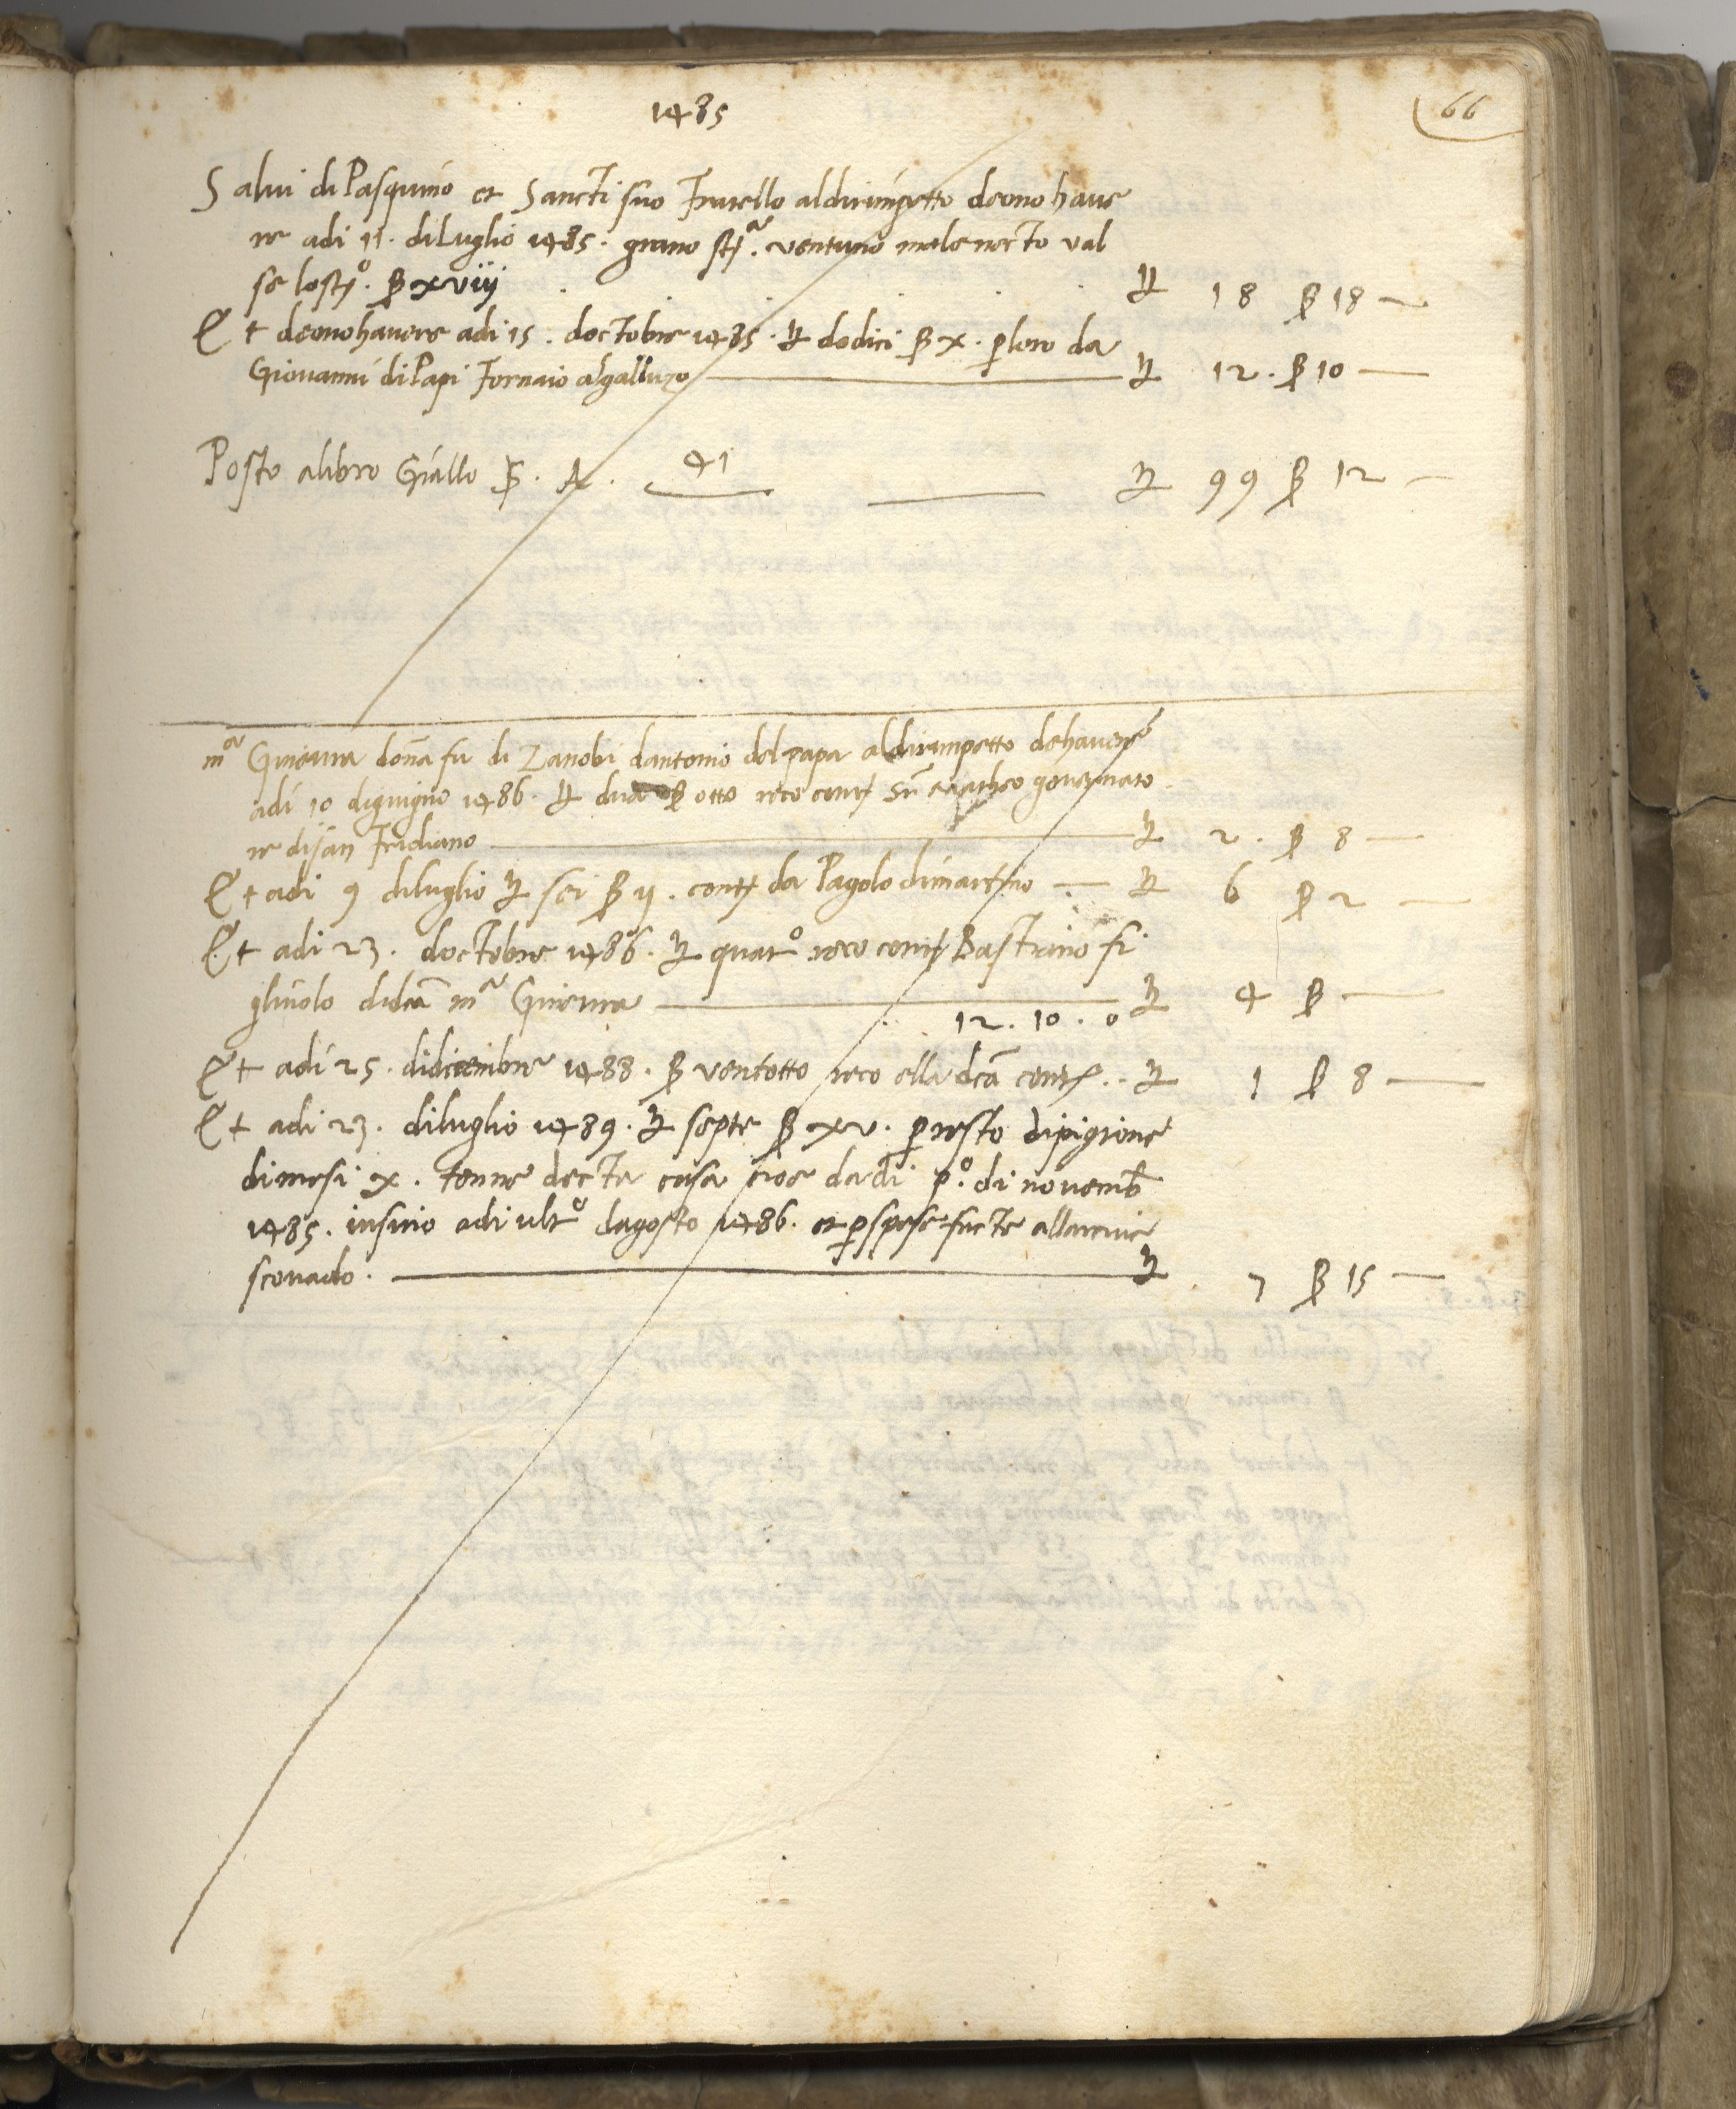 1485
66
Salvi di Pasquino et Sancti suo Fratello aldirimpetto deono have
re adi 11. di Luglio 1485. grano stª. ventuno male necto val
se lo stº. ß xviij . . . . ₶ 18 ß 18 —
Et deono havere adi 15. doctobre 1485. ₶ dodici ß x. ꝑ loro da
Giovanni di Papi Fornaio al galluzo — ₶ 12. ß 10 —
Posto alibro Giallo S. A. 41 — ₶ 99 ß 12 —
mª Ginevra dona fu di Zanobi dantonio del papa aldirimpetto dehavere
adi 10 digiugno 1486. ₶ dua ß otto reco contj governato
re di san Fridiano — ₶ 2. ß 8 —
Et adi 9 diluglio ₶ sei ß ij. contj da Pagolo dimartino — ₶ 6 ß 2 —
Et adi 23. doctobre 1486. ₶ quatº reco contj Bastiano fi
gliuolo didcã mª Ginevra — ₶ 4 ß —
12. 10. 0
Et adi 25. didicembre 1488. ß ventotto reco ella dcã contj.. ₶ 1 ß 8 —
Et adi 23. diluglio 1489. ₶ septe ß xv. ꝑ resto dipigione
dimesi x. tenne decta casa cioe dadi pº. di novemb̃
1485. insino adi ultº dagosto 1486. et ꝑ spese facte allarcive
scovado. — ₶ 7 ß 15 —